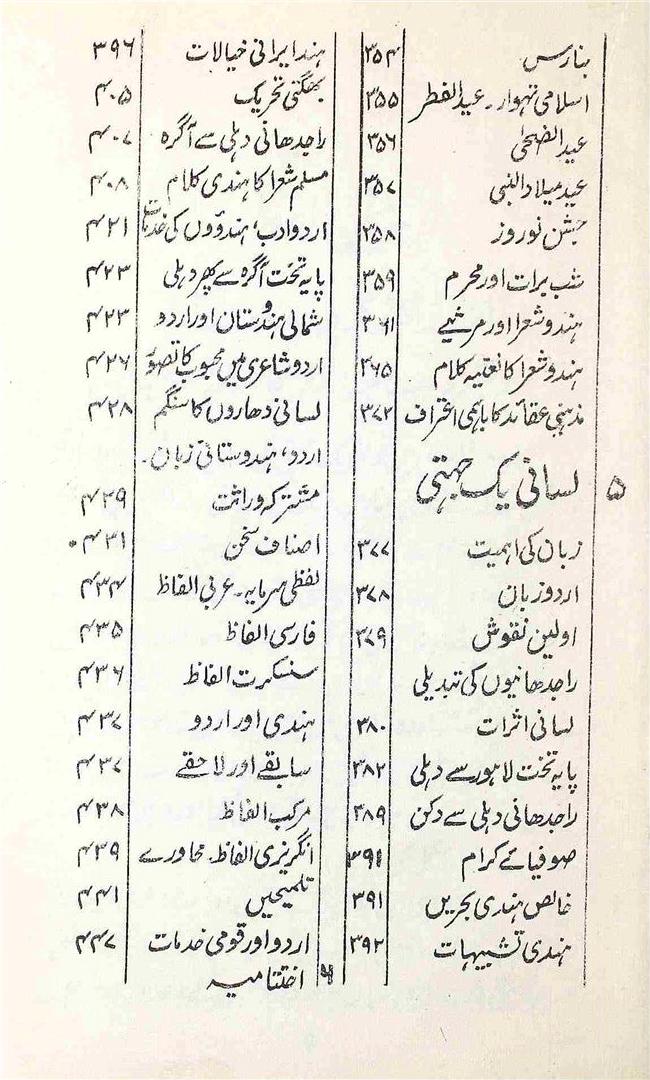 بنارس ۳۵۴
اسلامی تہوار۔ عید الفطر ۳۵۵
عید الضحیٰ ۳۵۶
عید میلاد النبی ۳۵۷
جشن نوروز ۳۵۸
شب برات اور محرم ۳۵۹
ہندو شعرا اور مرثیے ۳۶۱
ہندو شعرا کا نعتیہ کلام ۳۶۵
مذہبی عقائد کا باہمی اعتراف ۳۷۲
۵ لسانی یک جہتی
زبان کی اہمیت ۳۷۷
اردو زبان ۳۷۸
اولین نقوش ۳۷۹
راجدھانیوں کی تبدیلی
لسانی اثرات ۳۸۰
پایہ تخت لاہور سے دہلی ۳۸۲
راجدھانی دہلی سے دکن ۳۸۹
صوفیائے کرام ۳۹۱
خالص ہندی بحریں ۳۹۱
ہندی تشبیہات ۳۹۲
ہند ایرانی خیالات ۳۹۶
بھگتی تحریک ۴۰۵
راجدھانی دہلی سے آگرہ ۴۰۷
مسلم شعرا کا ہندی کلام ۴۰۸
اردو ادب، ہندوؤں کی خدمات ۴۲۱
پایہ تخت آگرہ سے پھر دہلی ۴۲۳
شمالی ہندوستان اور اردو ۴۲۳
اردو شاعری میں محبوب کا تصور ۴۲۶
لسانی دھاروں کا سنگم ۴۲۸
اردو، ہندوستانی زبان۔
مشترکہ وراثت ۴۲۹
اصناف سخن ۴۳۱
لفظی سرمایہ۔ عربی الفاظ ۴۳۴
فارسی الفاظ ۴۳۵
سنسکرت الفاظ ۴۳۶
ہندی اور اردو ۴۳۷
سابقے اور لاحقے ۴۳۷
مرکب الفاظ ۴۳۸
انگریزی الفاظ۔ محاورے ۴۳۹
تلمیحیں ۴۴۱
اردو اور قومی خدمات ۴۴۷
۶ اختتامیہ